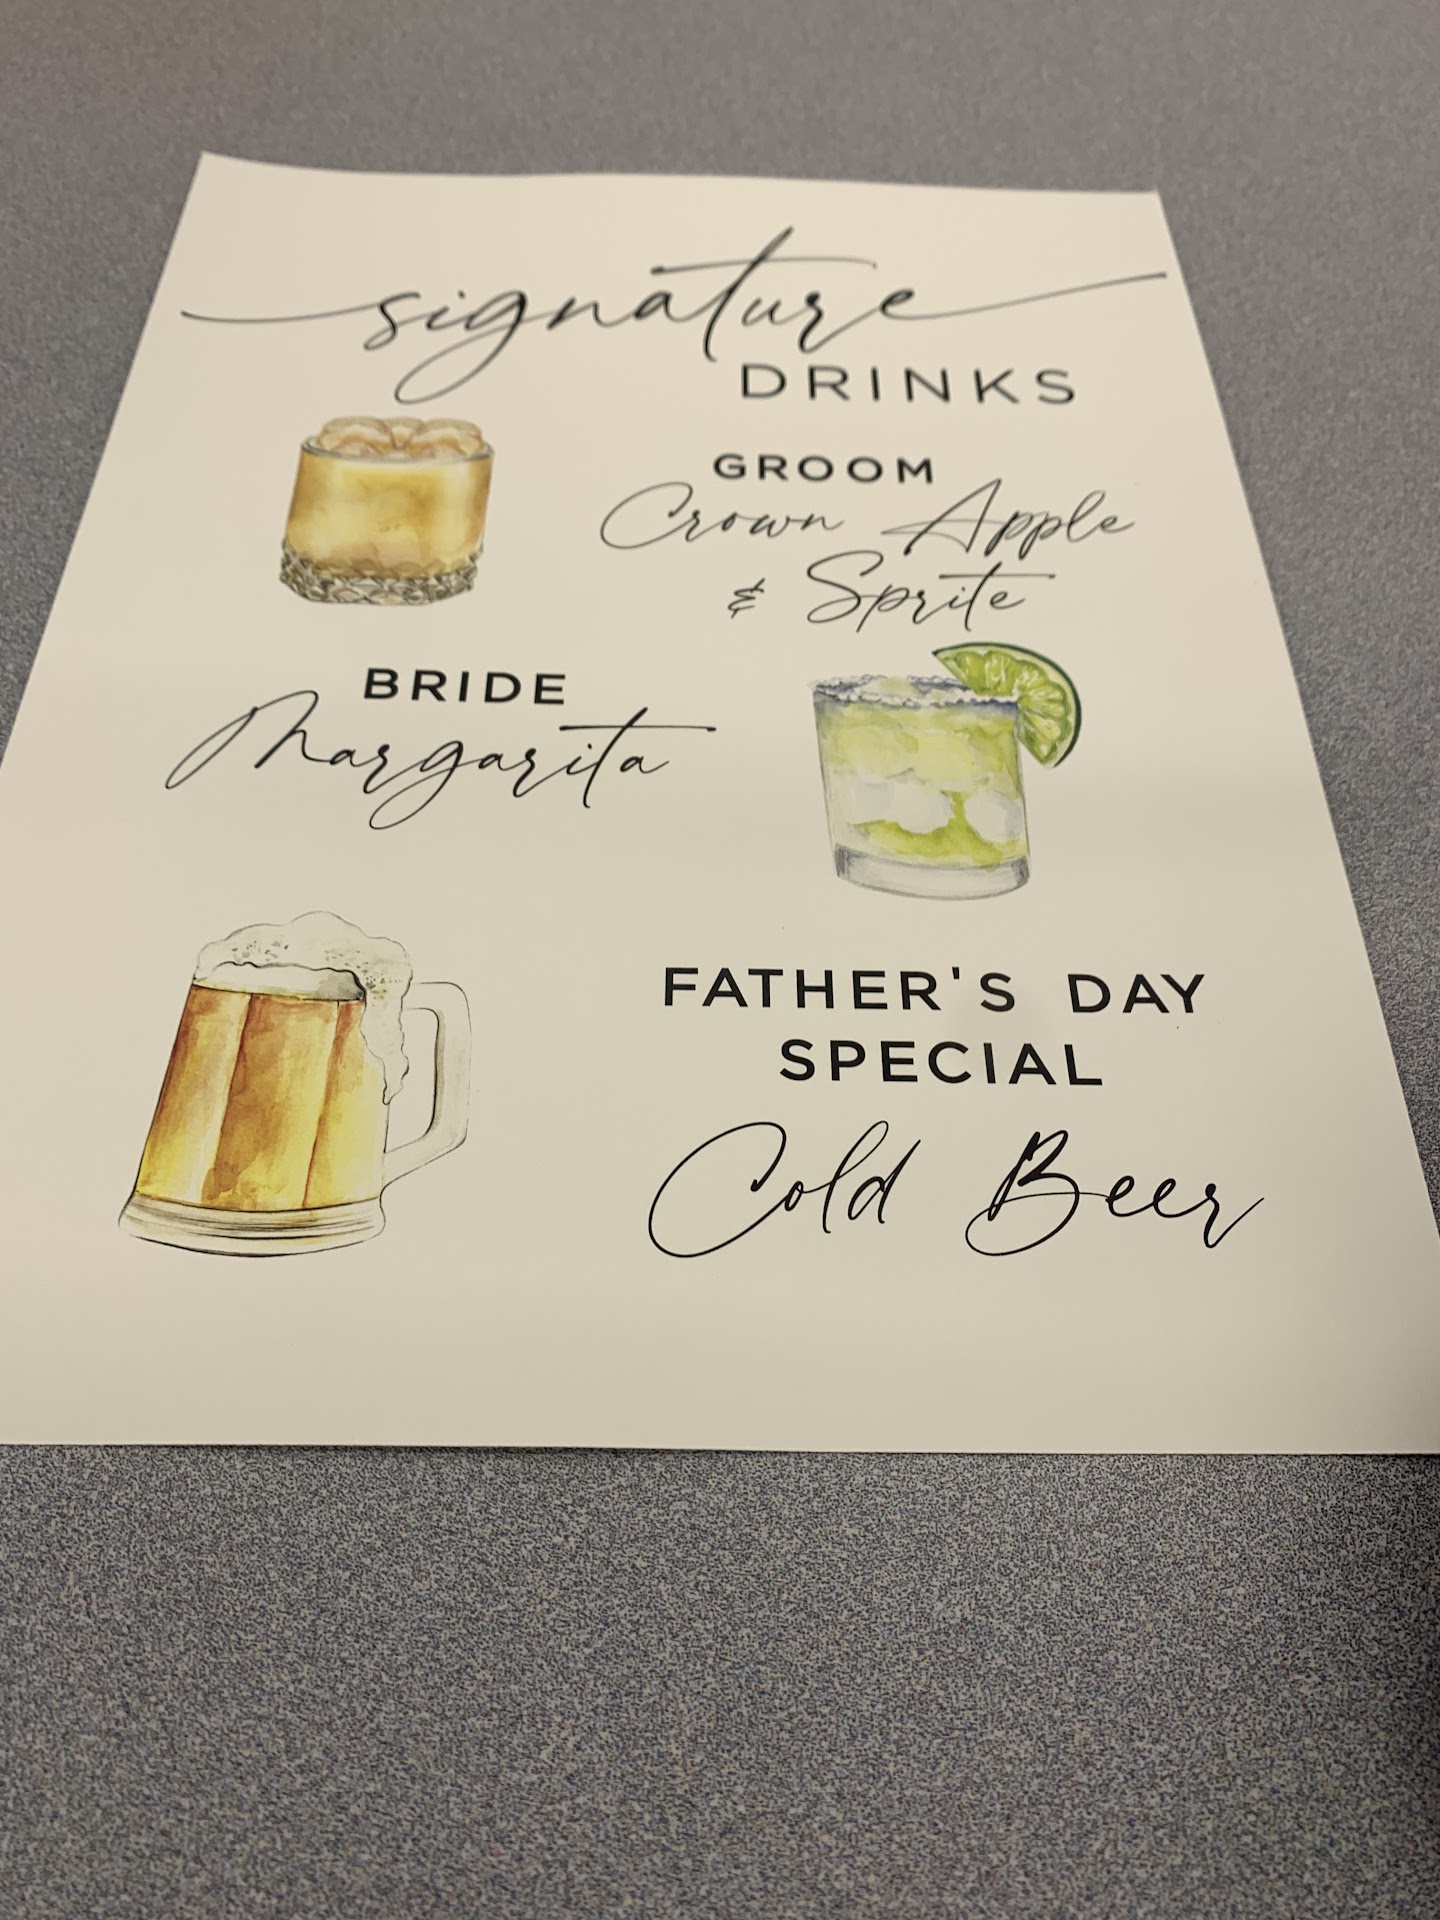 signature
DRINKS
GROOM
Crown Apple
& Sprite
BRIDE
Margarita
FATHER'S DAY
SPECIAL
Cold Beer